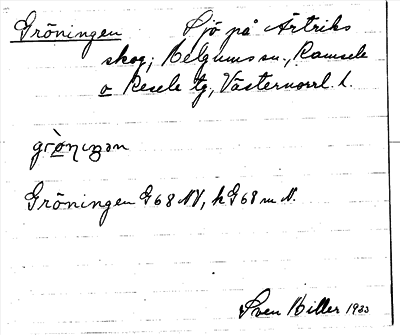 Gröningen Sjö på Ärtriks
skog; Helgums sn., Ramsele
o Resele tg, Västernorrl. l.
Gröningen G68 NV, hG68 m N.
Sven Hiller 1933